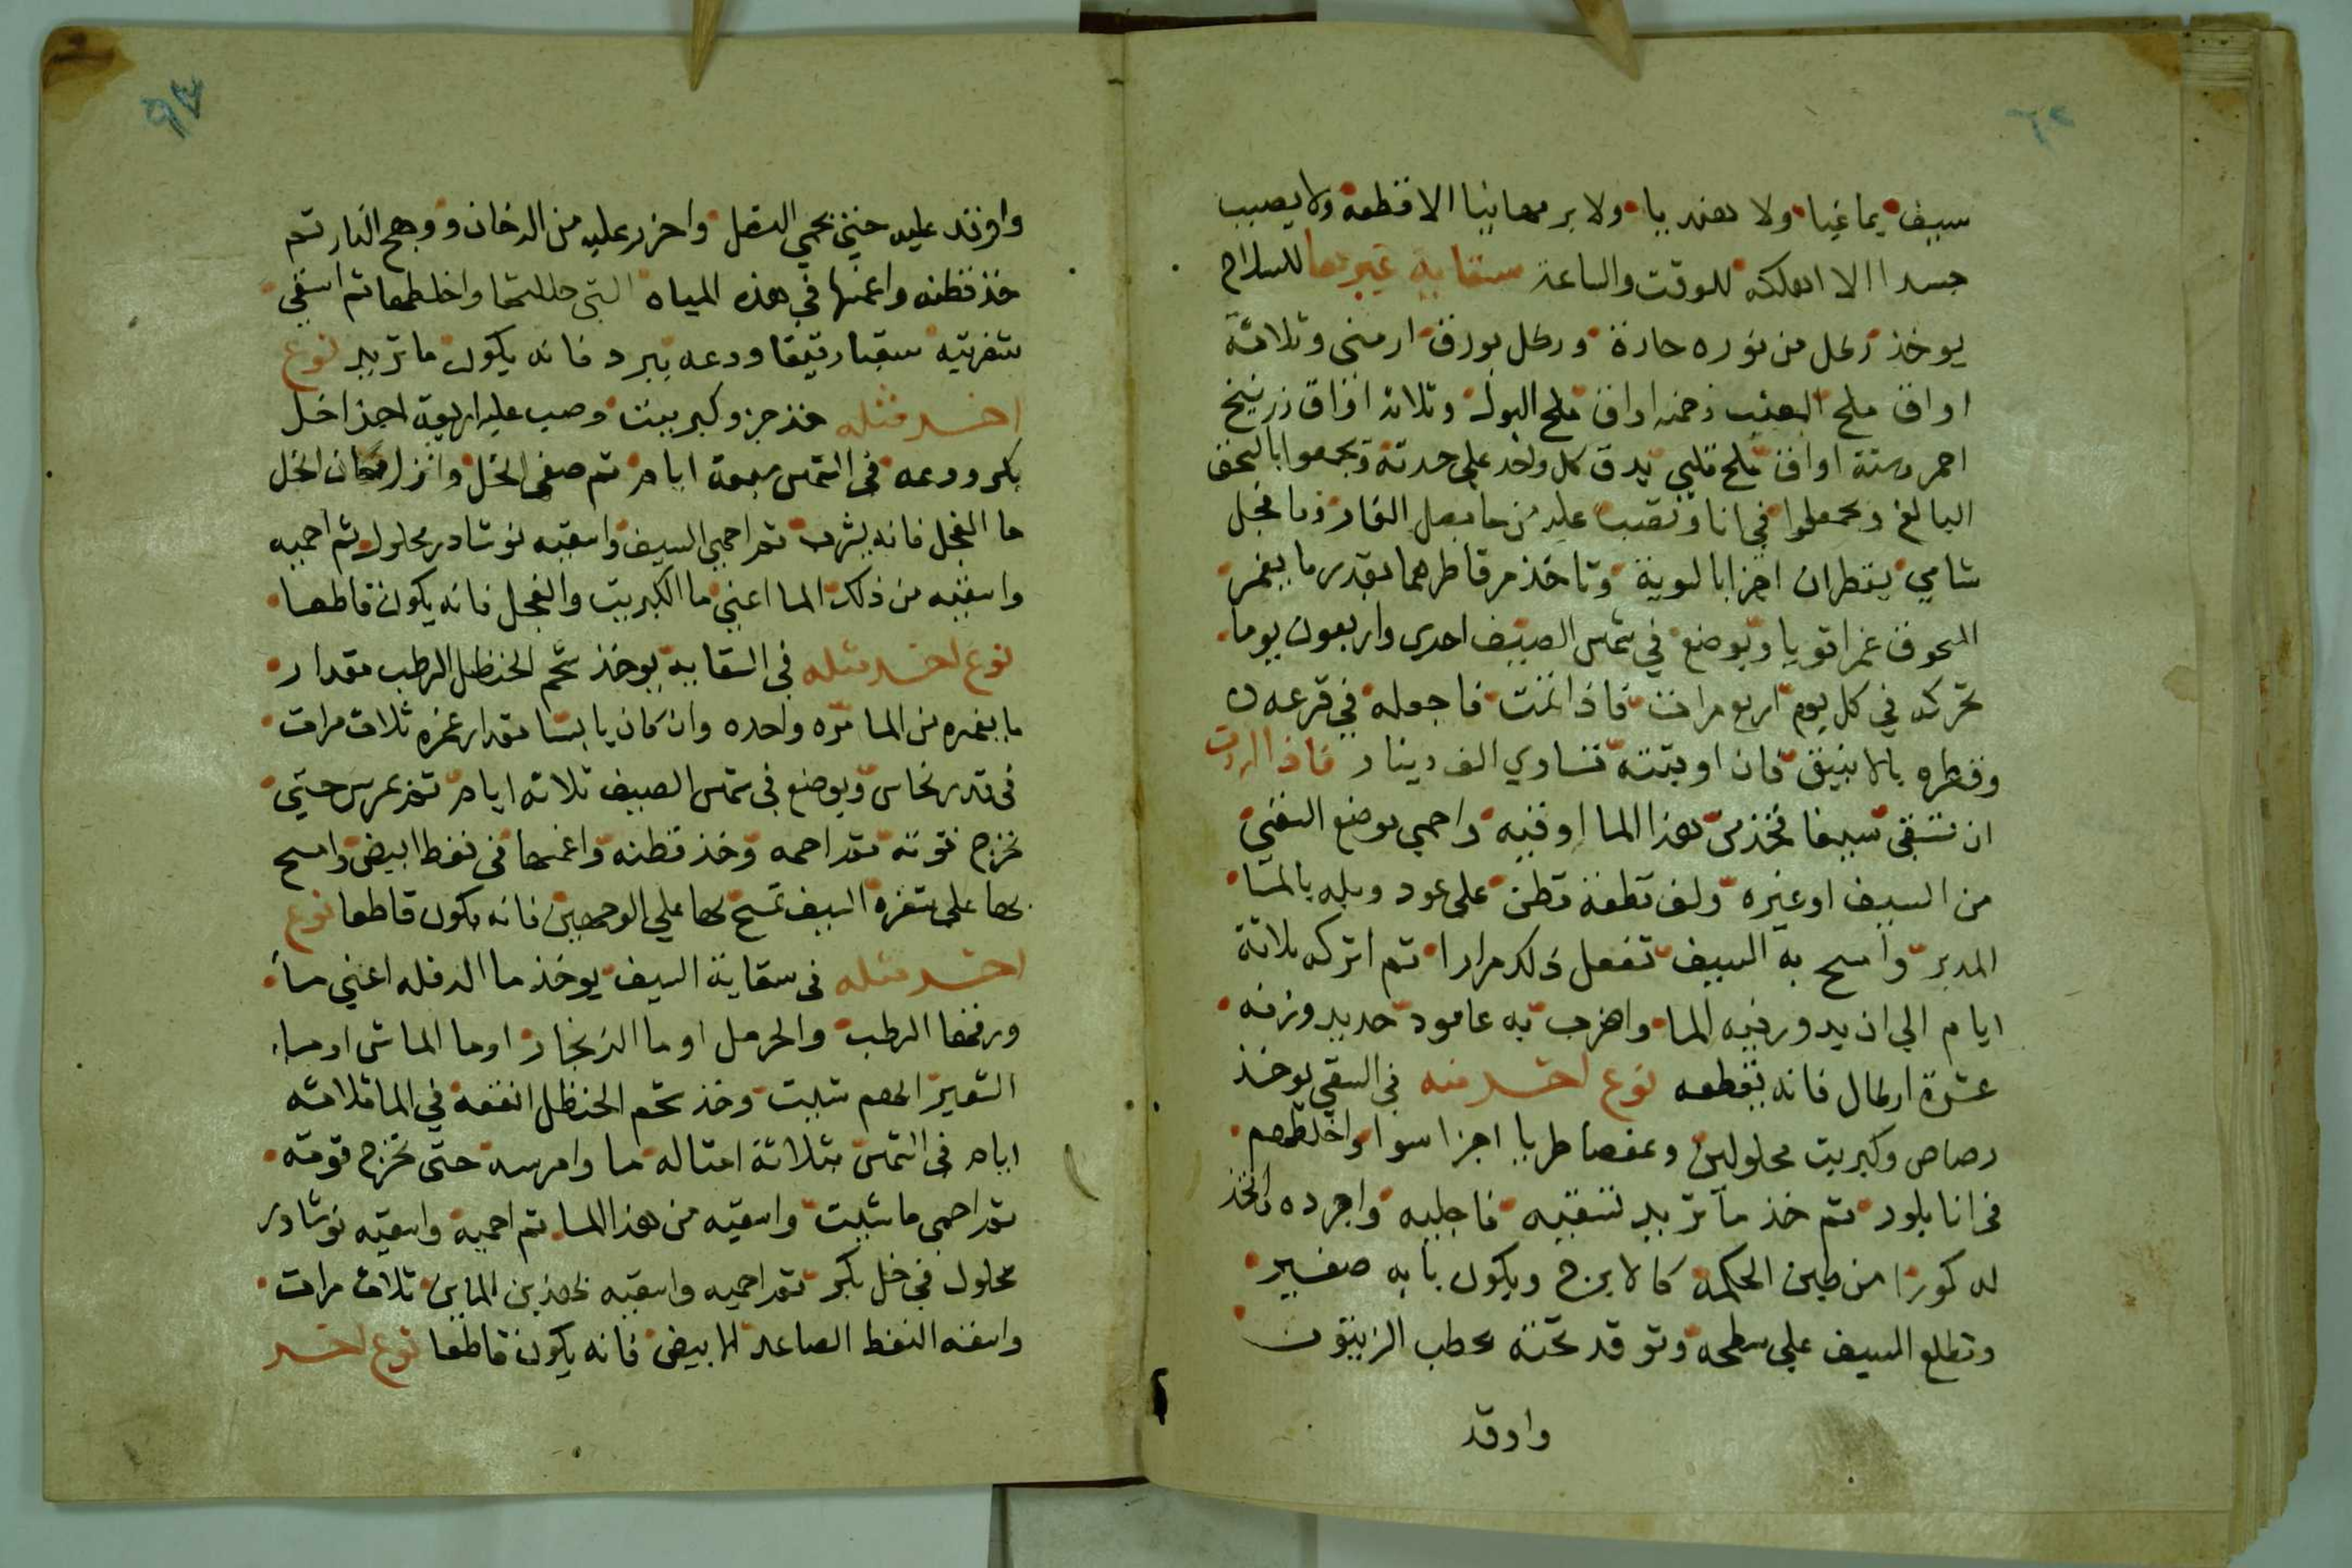 سيف يمانيا ولا هنديا ولا برمهانيا الا قطعه ولا يصيب
جسدا الا اهلكه للوقت والساعة سقاية غيرها للسلاح
يوخذ رطل من نوره حارة ورطل بورق ارمني وثلاثة
اواق ملح القلي وخمسه اواق ملح البول وثلاثه اواق زرنيخ
احمر وستة اواق ملح قلي يدق كل واحد على حدته وتجمعوا بالسحق
البالغ وتجعلوا في انا وتصب عليه من ما بصل الفار وما فجل
شامي يقطران اجزا بالسوية وتاخذ من قاطرهما بقدر ما يغمر
المسحوق غمرا قويا ويوضع في شمس الصيف احدى واربعون يوما
تحركه في كل يوم اربع مرات فاذا تمت فاجعله في قرعه
وقطره بالانبيق فان اوقيته تساوي الف دينار فاذا اردت
ان تسقي سيفا فخذ من هذا الما اوقيه واحمي موضع السقي
من السيف او غيره ولف قطعة قطن على عود وبله بالما
المدبر وامسح به السيف تفعل ذلك مرارا ثم اتركه ثلاثة
ايام الي ان يدور فيه الما واضرب به عامود حديد وزنه
عشرة ارطال فانه يقطعه نوع اخر منه في السقي يوخذ
رصاص وكبريت محلولين وعفصا طريا اجزا سوا واخلطهم
في انا بلور ثم خذ ما تريد تسقيه فاجليه واجرده واتخذ
له كورا من طين الحكمة كالابرج ويكون بابه صغير
وتطلع السيف علي سطحه وتوقد تحته بحطب الزيتون
واوقد
واوقد عليه حتي يحمي النصل واحرز عليه من الدخان ووهج النار ثم
خذ قطنه واغمسها في هذه المياه التي حللتها واخلطها ثم اسقي
شفرتيه سقيا رقيقا ودعه يبرد فانه يكون ما تريد نوع
اخر مثله خذ جزو كبريت وصب عليه اربعة اجزا خل
بكر ودعه في الشمس سبعة ايام ثم صفي الخل وانزل مكان الخل
ما الفجل فانه يشرب ثم احمي السيف واسقيه نوشادر محلول ثم احميه
واسقيه من ذلك الما اعني ما الكبريت والفجل فانه يكون قاطعا
نوع اخر مثله في السقايه يوخذ شحم الحنظل الرطب مقدار
ما يغمره من الما مره واحده وان كان يابسا مقدار غمره ثلاث مرات
في قدر نحاس ويوضع في شمس الصيف ثلاثه ايام ثم يمرس حتي
تخرج قوته ثم احمه وخذ قطنه واغمسها في نفط ابيض وامسح
بها على شفرة السيف تمسح بها علي الوجهين فانه يكون قاطعا نوع
اخر مثله في سقاية السيف يوخذ ما الدفله اعني ما
ورقها الرطب والحرمل او ما الزنجار او ما الماش او ما
الشعير ايهم شيت وخذ شحم الحنظل انقعه في الما ثلاثه
ايام في الشمس بثلاثة امثاله ما وامرسه حتى تخرج قوته
ثم احمي ما شيت واسقيه من هذا الما ثم احميه واسقيه نوشادر
محلول في خل بكر ثم احميه واسقيه بهذين الماين ثلاث مرات
واسقه النفط الصاعد الابيض فانه يكون قاطعا نوع اخر